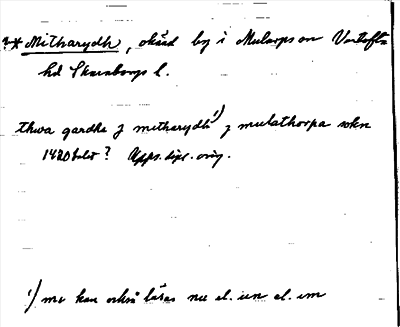 * Mitharydh, okänd by i Mularps sn Vartofta
hd Skaraborgs l.
thwa gardha j mitharydh 1) j mulathorpa sokn
1420 talet? Upps. dipl. orig.
1) mi kan också läsas nu el. un el. um